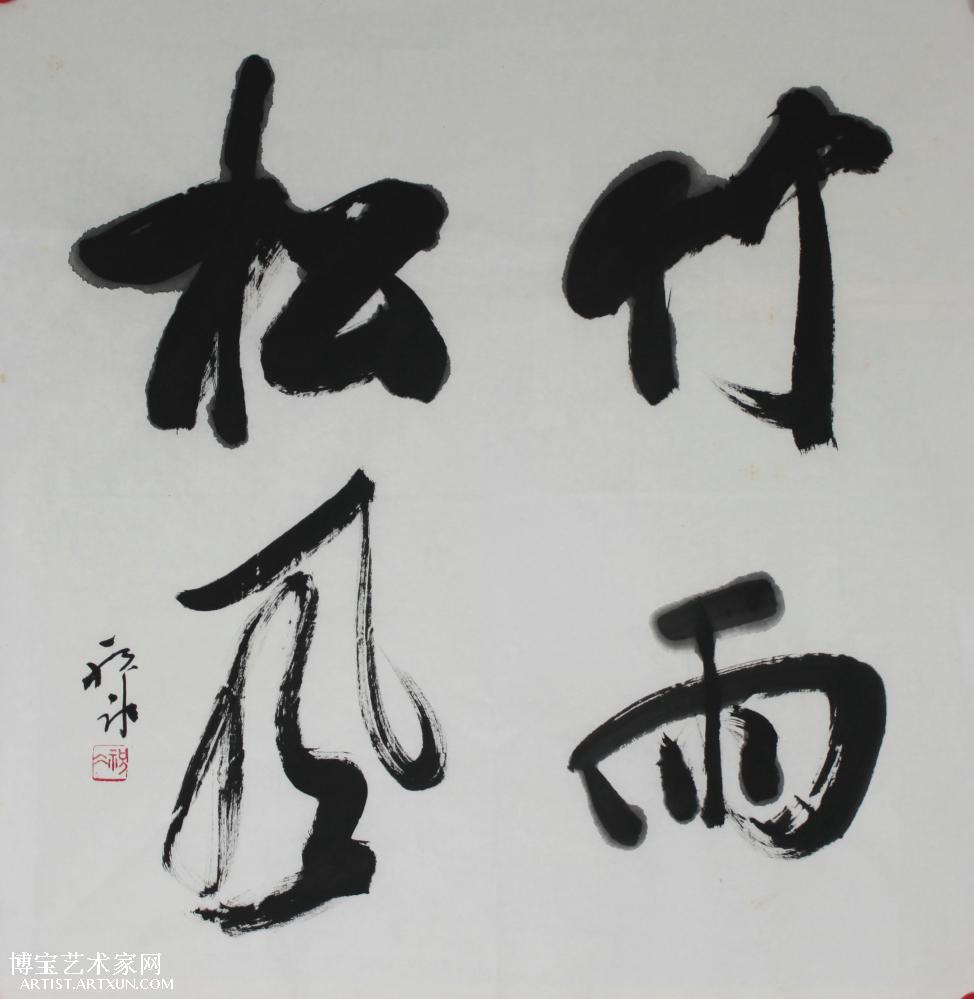 竹雨
松风
博宝艺术家网
ARTIST.ARTXUN.COM